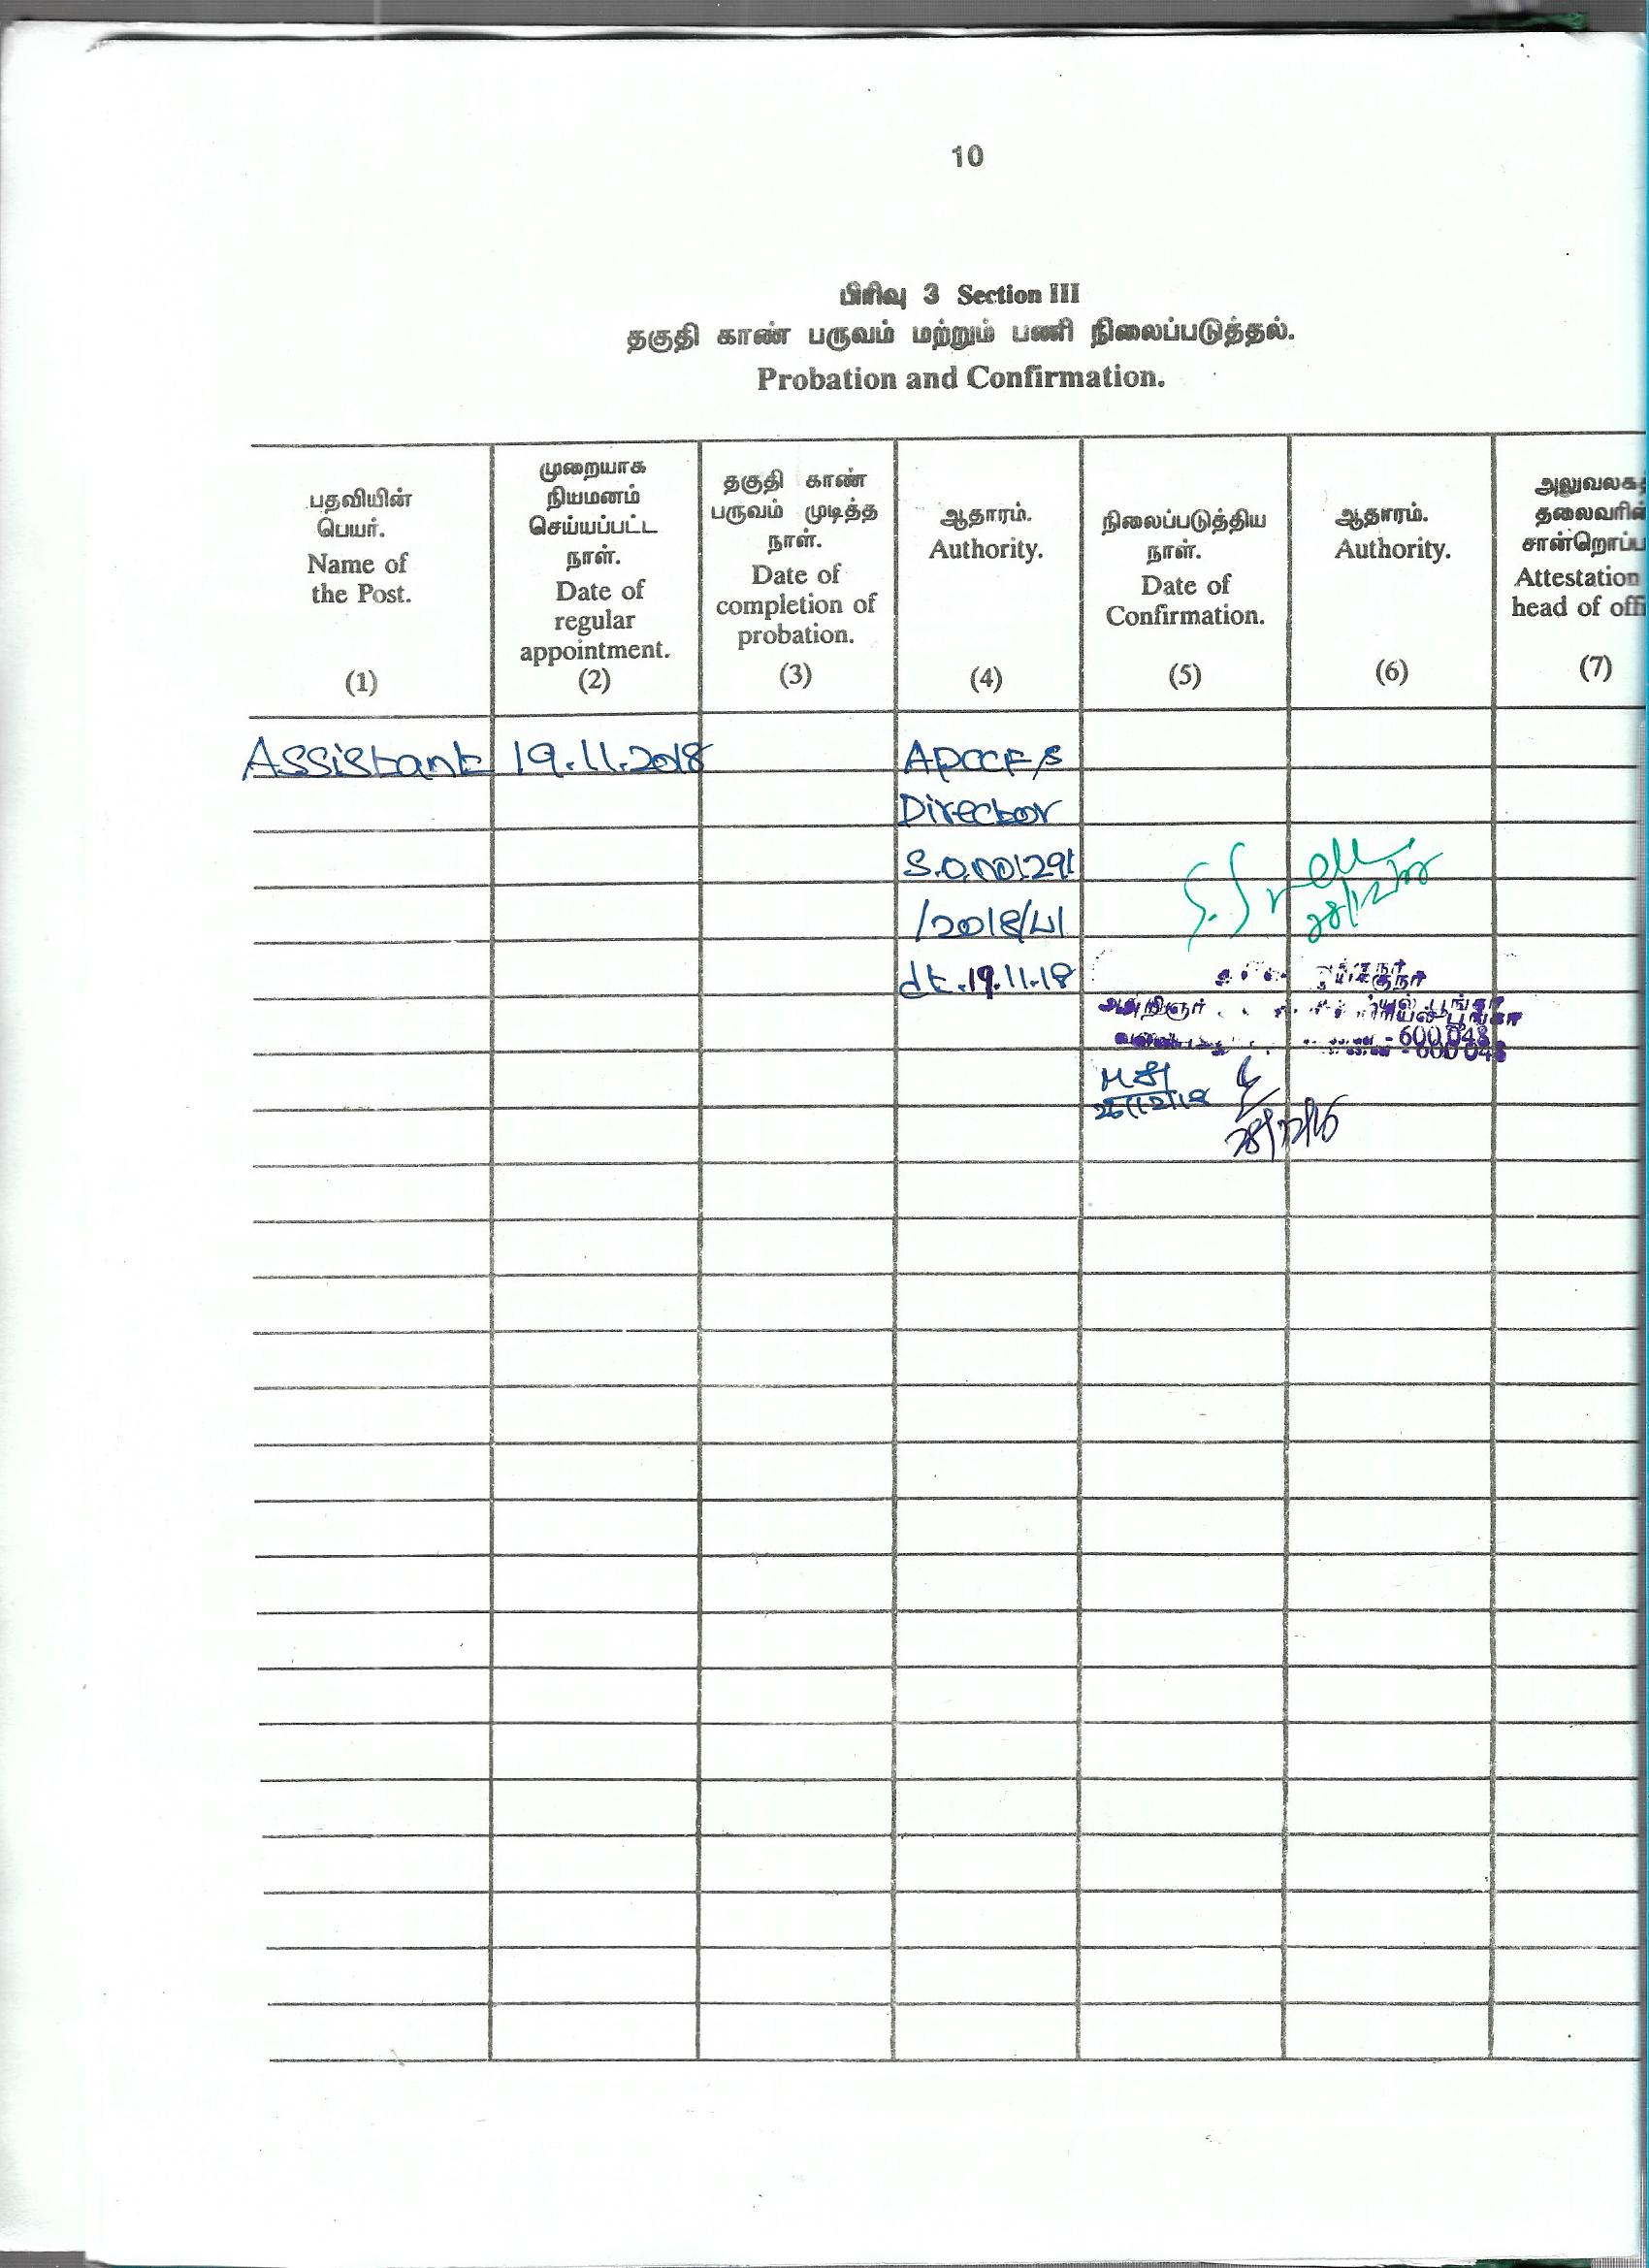 10
பிரிவு 3 Section III
தகுதி காண் பருவம் மற்றும் பணி நிலைப்படுத்தல்.
Probation and Confirmation.
பதவியின்
பெயர்.
Name of
the Post.
(1)
முறையாக
நியமனம்
செய்யப்பட்ட
நாள்.
Date of
regular
appointment.
(2)
தகுதி காண்
பருவம் முடித்த
நாள்.
Date of
completion of
probation.
(3)
ஆதாரம்.
Authority.
(4)
நிலைப்படுத்திய
நாள்.
Date of
Confirmation.
(5)
ஆதாரம்.
Authority.
(6)
அலுவலகத்
தலைவரின்
சான்றொப்ப
Attestation
head of offi
(7)
Assistant 19.11.2018
APCCF/s
Director
S.O.no1291
/2018/
dt.19.11.18
28/12/18
- 600 048
28/12/18